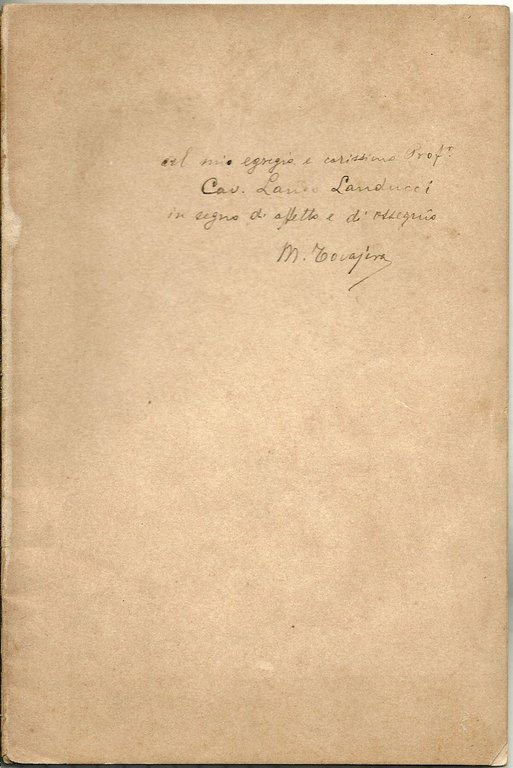 al mio egregio e carissimo Prof.r
Cav. Lando Landucci
in segno di affetto e di ossequio
M. Tovajera